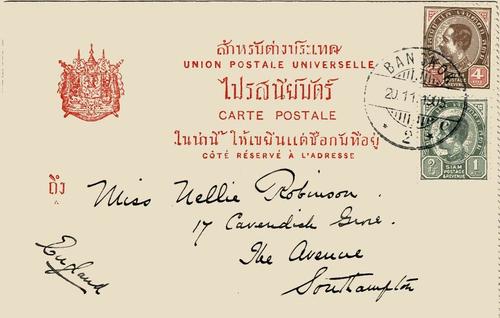 สำหรับต่างประเทศ
UNION POSTALE UNIVERSELLE
ไปรสนีย์บัตร์
CARTE POSTALE
ในน่านี้ ให้เขียนแต่ชื่อกับที่อยู่
CÔTÉ RÉSERVÉ À L'ADRESSE
4
BANGKOK
20.11.1905
2
SIAM
POSTAGE
&REVENUE
1
ถึง
Miss Nellie Robinson.
17 Cavendish Grove.
The Avenue
Southampton
England